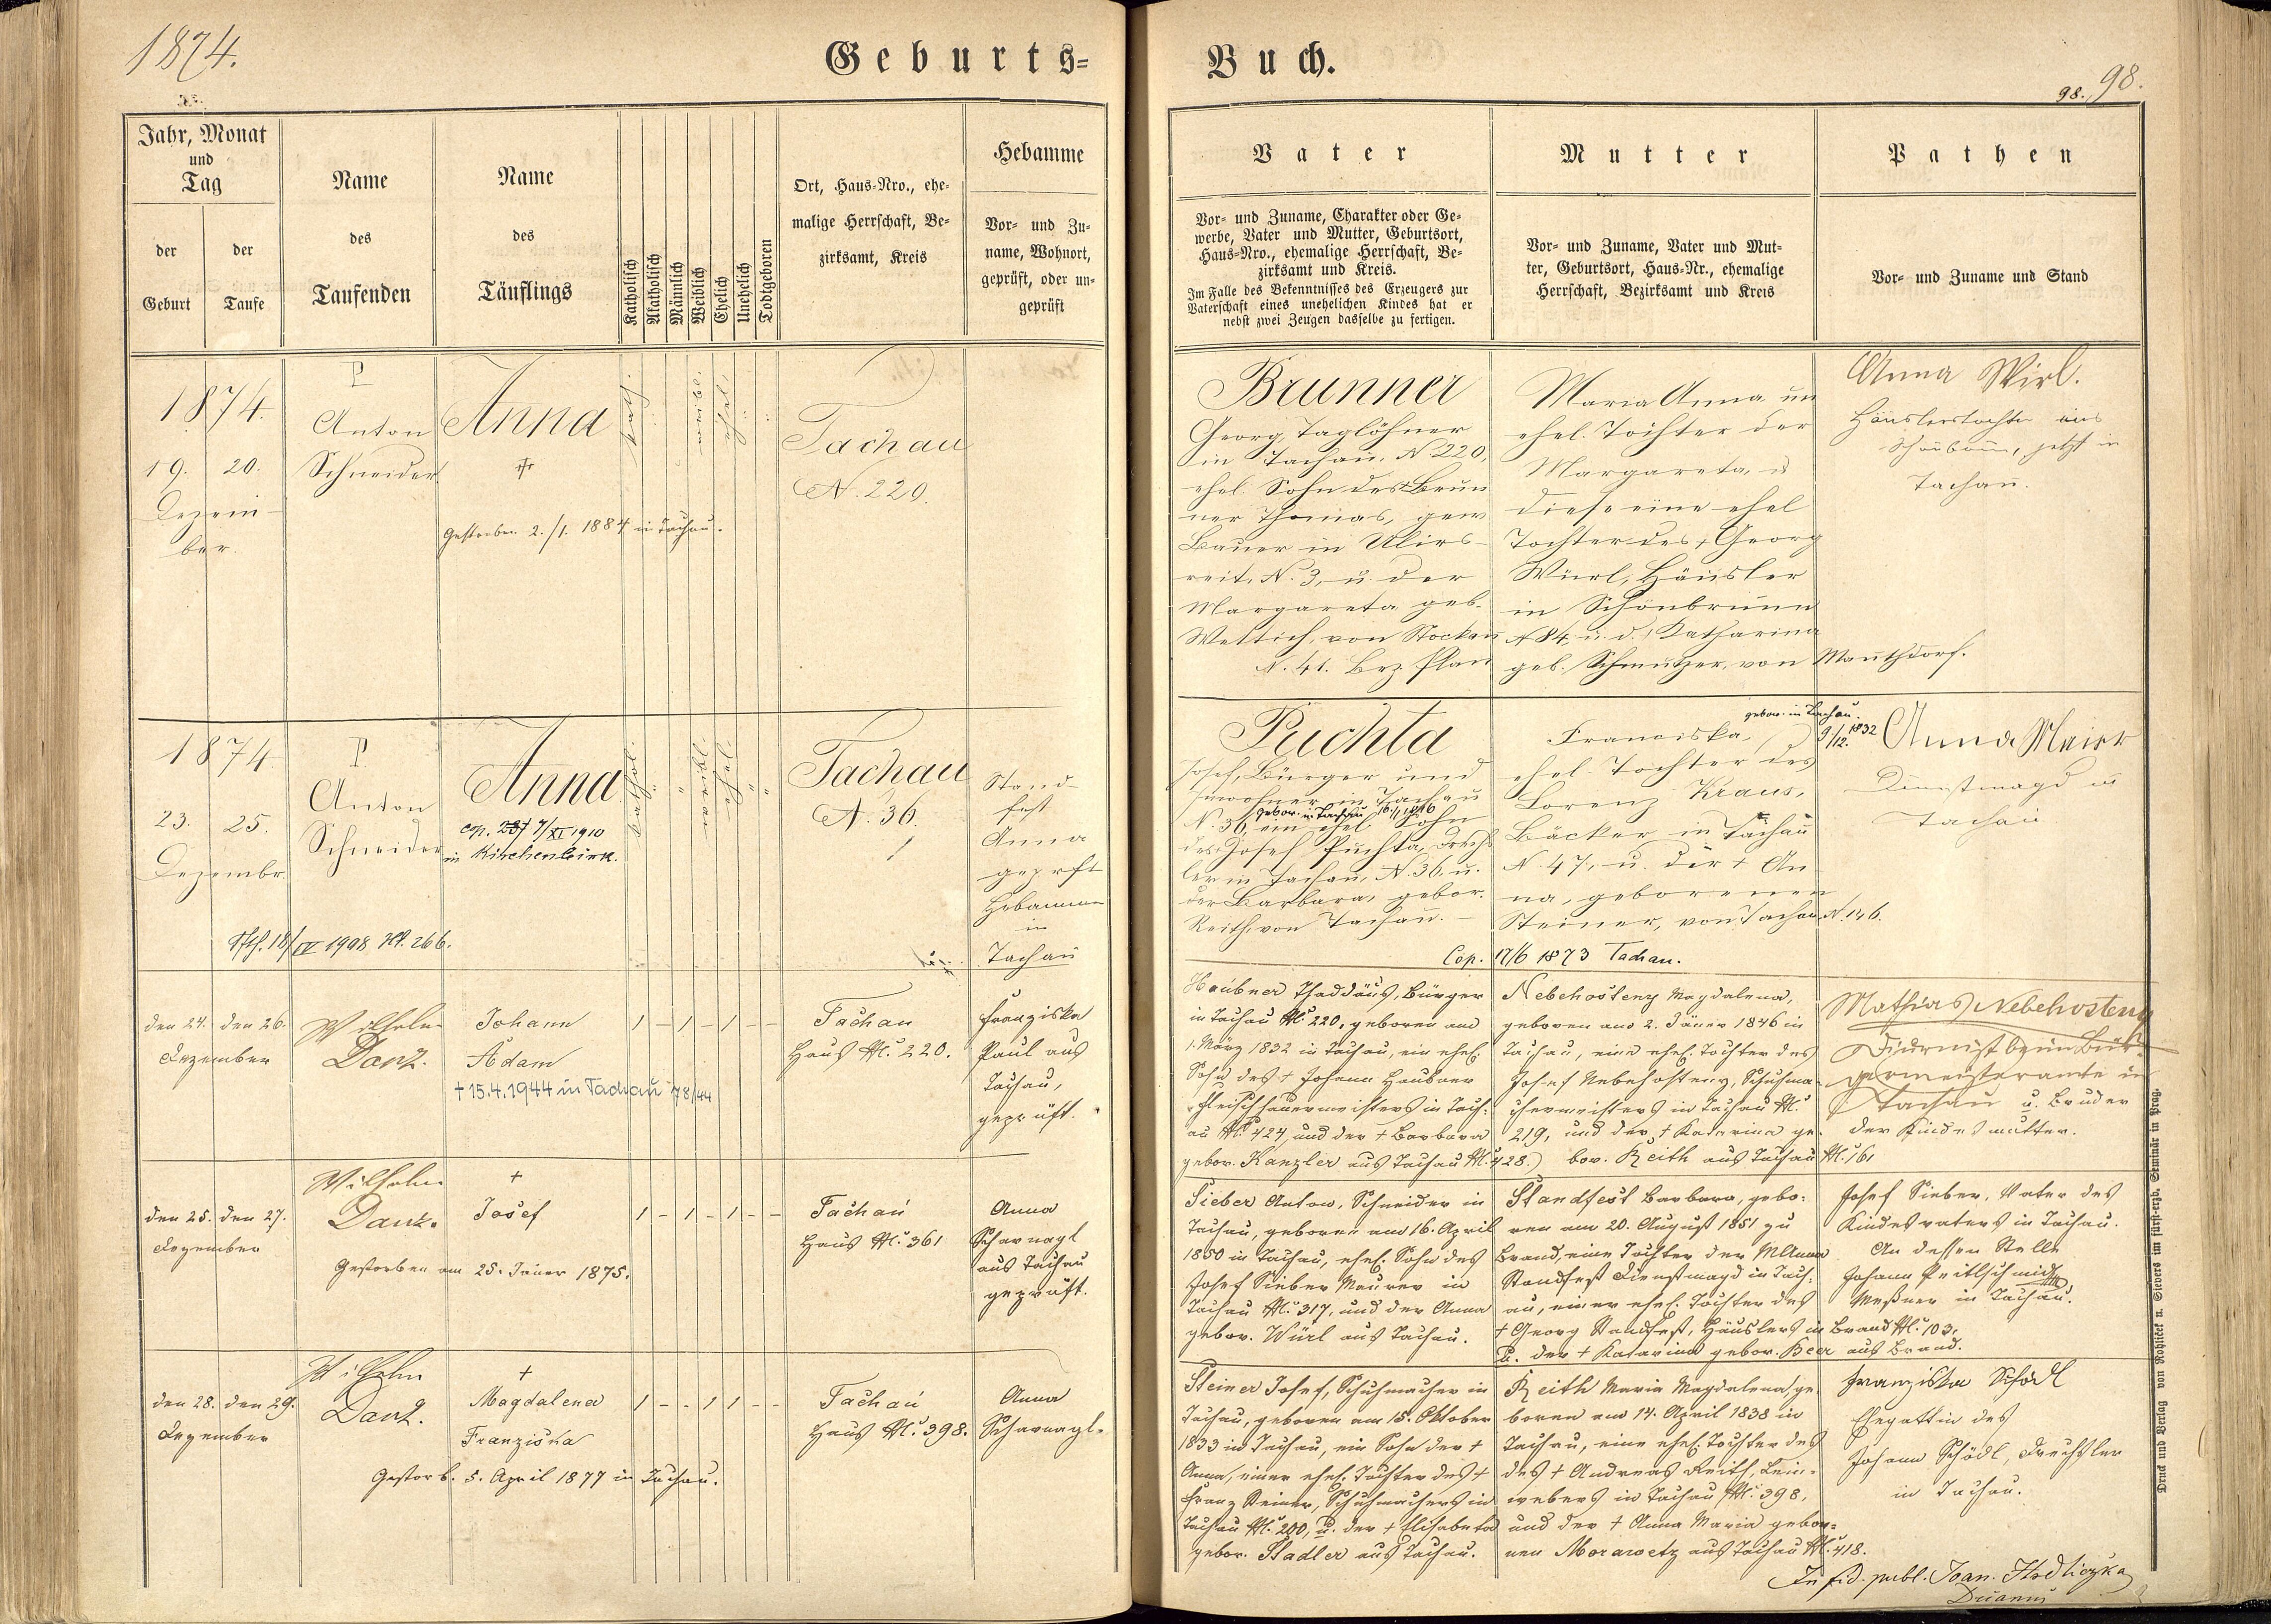 1874.
Geburts-
Buch.
98. 98.
Jahr, Monat
und
Tag
der
Geburt
der
Taufe
Name
des
Taufenden
Name
des
Täuflings
Katholisch
Akatholisch
Männlich
Weiblich
Ehelich
Unehelich
Todtgeboren
Ort, Haus-Nro., ehe-
malige Herrschaft, Be-
zirksamt, Kreis
Hebamme
Vor- und Zu-
name, Wohnort,
geprüft, oder un-
geprüft
Vater
Vor- und Zuname, Charakter oder Ge-
werbe, Vater und Mutter, Geburtsort,
Haus-Nro., ehemalige Herrschaft, Be-
zirksamt und Kreis.
Im Falle des Bekenntnisses des Erzeugers zur
Vaterschaft eines unehelichen Kindes hat er
nebst zwei Zeugen dasselbe zu fertigen.
Mutter
Vor- und Zuname, Vater und Mut-
ter, Geburtsort, Haus-Nr., ehemalige
Herrschaft, Bezirksamt und Kreis
Pathen
Vor- und Zuname und Stand
1874.
19. 20.
Dezem-
ber.
P
Anton
Schneider
Anna
†
Gestorben 2./1. 1884 in Tachau.
kath.
weibl.
ehel.
Tachau
N. 220.
Brunner
Georg, Taglöhner
in Tachau, N 220,
ehel. Sohn des † Brun
ner Thomas, gew
Bauer in Ulirs-
reit, N. 3, u. der
Margareta geb.
Wettich, von Stockau
N. 41. Bez. Plan
Maria Anna un
ehel. Tochter der
Margareta,
diese eine ehel
Tochter des † Georg
Würl, Häusler
in Schönbrunn
N 84, u. d. Katharina
geb. Schmutzer, von Mauthdorf.
Anna Wirl.
Häuslerstochter aus
Schönbrunn, jetzt in
Tachau.
1874.
23. 25.
Dezembr.
P
Anton
Schneider
Anna
cop. 7/XI 1910
in Kirchenbirk.
18/IV 1908 Nr. 266.
kathol.
Tachau
N. 36.
Stand-
fest
Anna
geprft
Hebamme
in
Tachau
Puchta
Josef, Bürger und
Inwohner in Tachau
gebor. in Tachau 16./1. 1816
N. 36, ein ehel. Sohn
des Josef Puchta, Drechs
ler in Tachau, N. 36. u.
der Barbara, gebor.
Reith, von Tachau.
Franciska,
gebor. in Tachau.
9/12. 1832
ehel. Tochter des
Lorenz Kraus,
Bäcker in Tachau
N. 47, u. der † An
na, geborenen
Steiner, von Tachau N. 146.
Cop. 17/6 1873 Tachau.
Anna Maier
Dienstmagd in
Tachau
den 24. den 26.
Dezember
Wilhelm
Danz.
Johann
Adam
† 15.4.1944 in Tachau 78/44
1 - 1 - 1 - -
Tachau
Haus Nr. 220.
Franziska
Paul aus
Tachau,
geprüft.
Haubner Thaddäus, Bürger
in Tachau Nr. 220, geboren am
1. März 1832 in Tachau, ein ehel.
Sohn des † Johann Haubner
Fleischhauermeisters in Tach-
au Nr. 424 und der † Barbara
gebor. Kanzler aus Tachau Nr. 428.
Nebehosteny Magdalena,
geboren am 2. Jäner 1846 in
Tachau, eine ehel. Tochter des
Josef Nebehosteny, Schuhma-
chermeisters in Tachau Nr.
219, und der † Katarina ge-
bor. Reith aus Tachau Nr. 161
Mathias Nebehosteny
Diurnist beim Bür-
germeisteramte in
Tachau u. Bruder
der Kindesmutter.
den 25. den 27.
Dezember
Wilhelm
Danz.
†
Josef
Gestorben am 25. Jäner 1875.
1 - 1 - 1 - -
Tachau
Haus Nr. 361
Anna
Scharnagl
aus Tachau
geprüft.
Sieber Anton, Schneider in
Tachau, geboren am 16. April
1850 in Tachau, ehel. Sohn des
Josef Sieber Maurer in
Tachau Nr. 317, und der Anna
gebor. Würl aus Tachau.
Standfest Barbara, gebo-
ren am 20. August 1851 zu
Brand, eine Tochter der MAnna
Standfest Dienstmagd in Tach-
au, einer ehel. Tochter des
† Georg Standfest, Häuslers in Brand Nr. 103,
u. der † Katarina gebor. Beer aus Brand.
Josef Sieber, Vater des
Kindesvaters in Tachau.
An dessen Stelle
Johann Peitlschmidt,
Meßner in Tachau.
den 28. den 29.
Dezember
Wilhelm
Danz.
†
Magdalena
Franziska
Gestorb. 5. April 1877 in Tachau.
1 - - 1 1 - -
Tachau
Haus Nr. 398.
Anna
Scharnagl.
Steiner Josef, Schuhmacher in
Tachau, geboren am 15. Oktober
1833 in Tachau, ein Sohn der †
Anna, einer ehel. Tochter des †
Franz Steiner, Schuhmachers in
Tachau Nr. 200, u. der † Elisabeta
gebor. Stadler aus Tachau.
Reith Maria Magdalena, ge-
boren am 14. April 1838 in
Tachau, eine ehel. Tochter des
des † Andreas Reith, Lein-
webers in Tachau Nr. 398,
und der † Anna Maria gebor-
nen Morawetz aus Tachau Nr. 418.
Franziska Schödl
Ehegattin des
Johann Schödl, Drechsler
in Tachau.
In fid. publ. Joan. Hodliczka
Decanus
Druck und Verlag von Rohliček u. Sievers im fürst-erzb. Seminär in Prag.